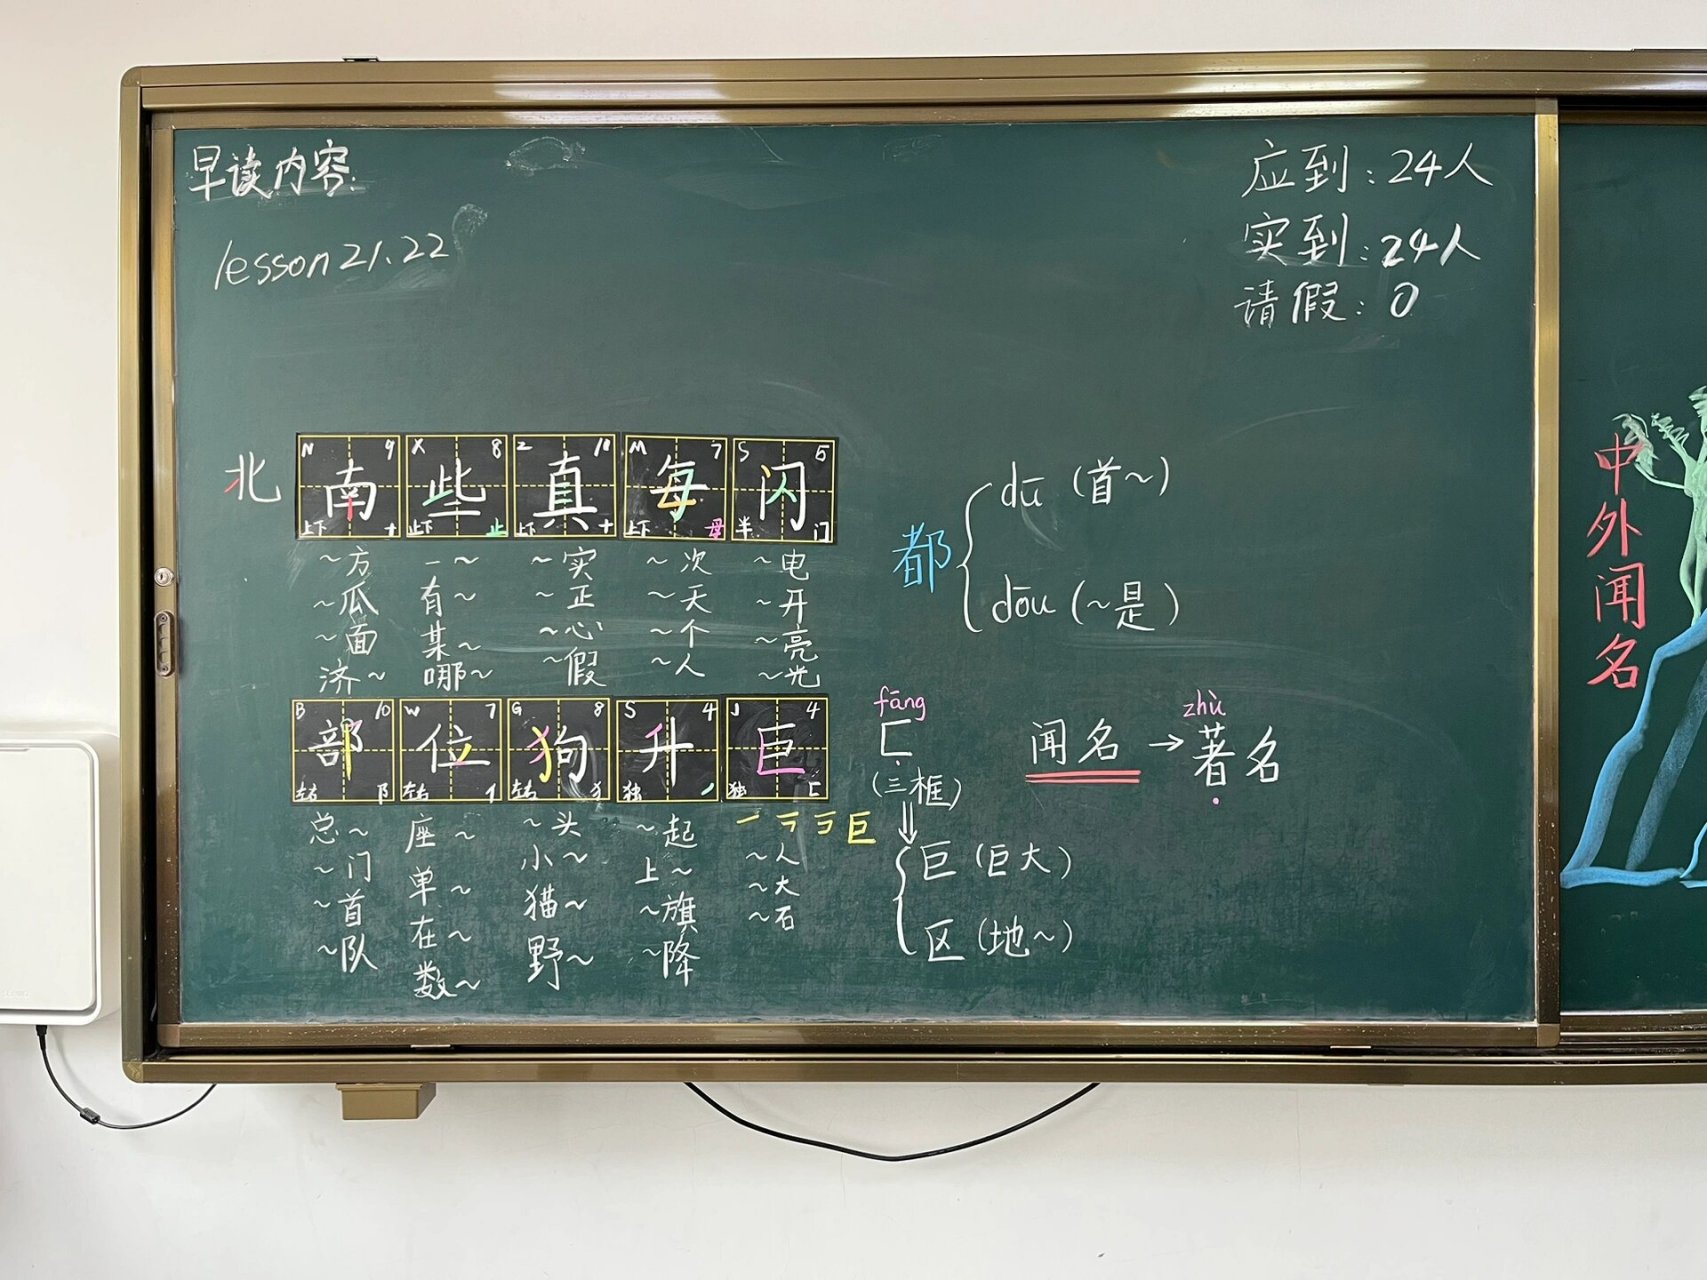 早读内容:
lesson21、22
应到:24人
实到:24人
请假:0
北
N 9 X 8 Z 10 M 7 S 5
南 些 真 每 闪
上下 十 上下 止 上下 十 上下 母 半 门
~方 一~ ~实 ~次 ~电
~瓜 有~ ~正 ~天 ~开
~面 某~ ~心 ~个 ~亮
济~ 哪~ ~假 ~人 ~光
B 10 W 7 G 8 S 4 J 4
部 位 狗 升 巨
左右 阝 左右 亻 左右 犭 独 丿 独 匚
总~ 座~ ~头 ~起
~门 单~ 小~ 上~ ~人
~首 在~ 猫~ ~旗 ~大
~队 数~ 野~ ~降 ~石
巨
都
dū (首~)
dōu (~是)
fāng
匚
(三框)
巨 (巨大)
区 (地~)
zhù
闻名→著名
中外闻名